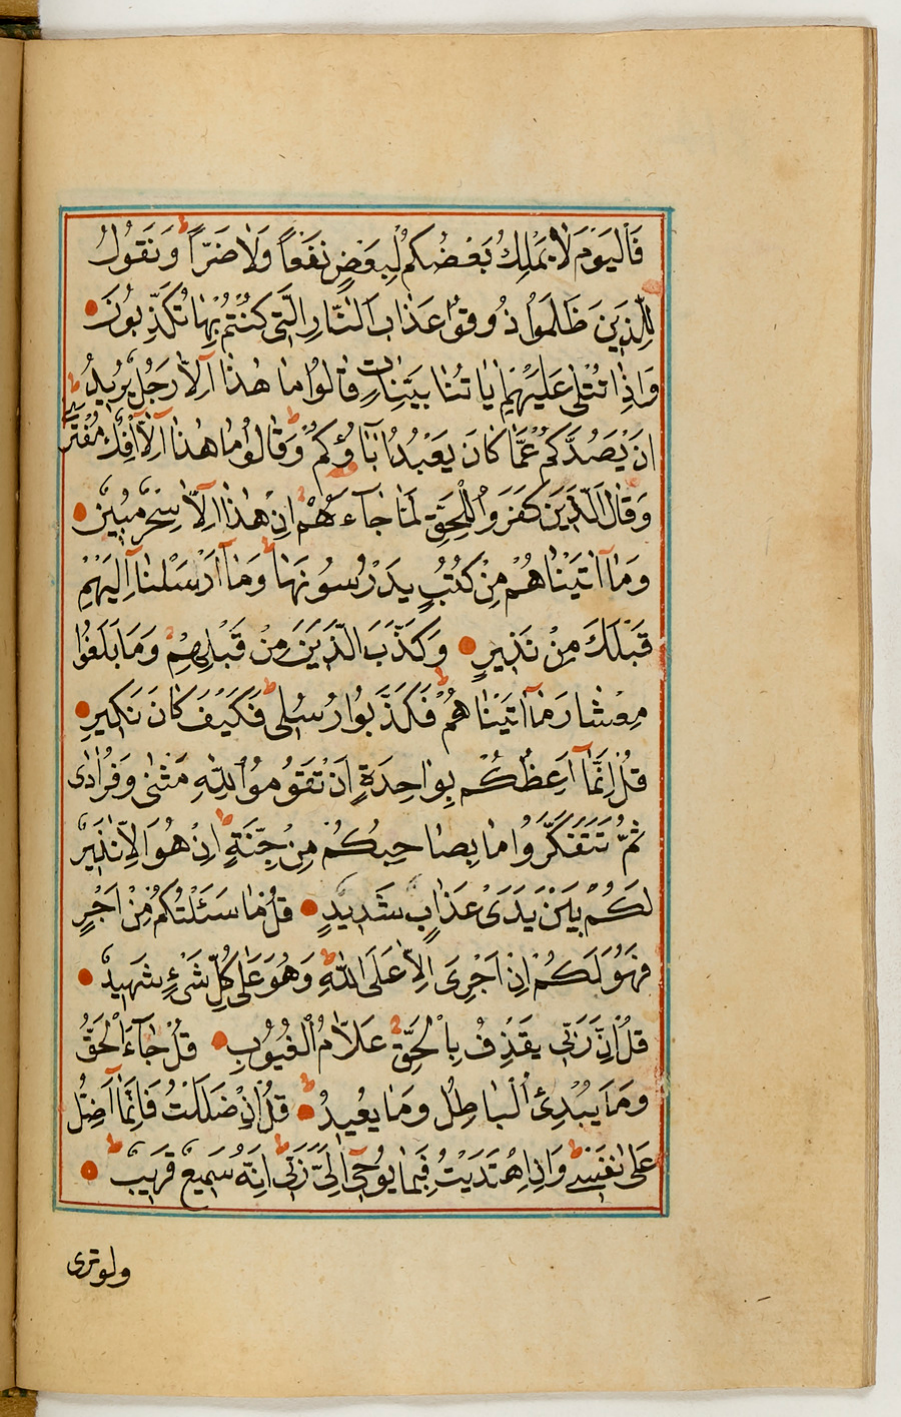 فَالْيَوْمَ لَا يَمْلِكُ بَعْضُكُمْ لِبَعْضٍ نَفْعًا وَلَا ضَرًّا ط وَنَقُولُ
لِلَّذِينَ ظَلَمُوا ذُوقُوا عَذَابَ النَّارِ الَّتِي كُنْتُمْ بِهَا تُكَذِّبُونَ
وَاِذَا تُتْلٰى عَلَيْهِمْ اٰيَاتُنَا بَيِّنَاتٍ قَالُوا مَا هٰذَا اِلَّا رَجُلٌ يُرِيدُ
اَنْ يَصُدَّكُمْ عَمَّا كَانَ يَعْبُدُ اٰبَاؤُكُمْ ط وَقَالُوا مَا هٰذَا اِلَّا اِفْكٌ مُفْتَرًى ط
وَقَالَ الَّذِينَ كَفَرُوا لِلْحَقِّ لَمَّا جَاءَهُمْ اِنْ هٰذَا اِلَّا سِحْرٌ مُبِينٌ
وَمَا اٰتَيْنَاهُمْ مِنْ كُتُبٍ يَدْرُسُونَهَا ط وَمَا اَرْسَلْنَا اِلَيْهِمْ
قَبْلَكَ مِنْ نَذِيرٍ وَكَذَّبَ الَّذِينَ مِنْ قَبْلِهِمْ وَمَا بَلَغُوا
مِعْشَارَ مَا اٰتَيْنَاهُمْ فَكَذَّبُوا رُسُلِي ط فَكَيْفَ كَانَ نَكِيرِ
قُلْ اِنَّمَا اَعِظُكُمْ بِوَاحِدَةٍ اَنْ تَقُومُوا لِلّٰهِ مَثْنٰى وَفُرَادٰى
ثُمَّ تَتَفَكَّرُوا مَا بِصَاحِبِكُمْ مِنْ جِنَّةٍ ط اِنْ هُوَ اِلَّا نَذِيرٌ
لَكُمْ بَيْنَ يَدَيْ عَذَابٍ شَدِيدٍ قُلْ مَا سَئَلْتُكُمْ مِنْ اَجْرٍ
فَهُوَ لَكُمْ اِنْ اَجْرِيَ اِلَّا عَلَى اللّٰهِ ط وَهُوَ عَلٰى كُلِّ شَيْءٍ شَهِيدٌ
قُلْ اِنَّ رَبِّي يَقْذِفُ بِالْحَقِّ عَلَّامُ الْغُيُوبِ قُلْ جَاءَ الْحَقُّ
وَمَا يُبْدِئُ الْبَاطِلُ وَمَا يُعِيدُ قُلْ اِنْ ضَلَلْتُ فَاِنَّمَا اَضِلُّ
عَلٰى نَفْسِي ط وَاِنِ اهْتَدَيْتُ فَبِمَا يُوحِي اِلَيَّ رَبِّي ط اِنَّهُ سَمِيعٌ قَرِيبٌ ط
ولو ترى